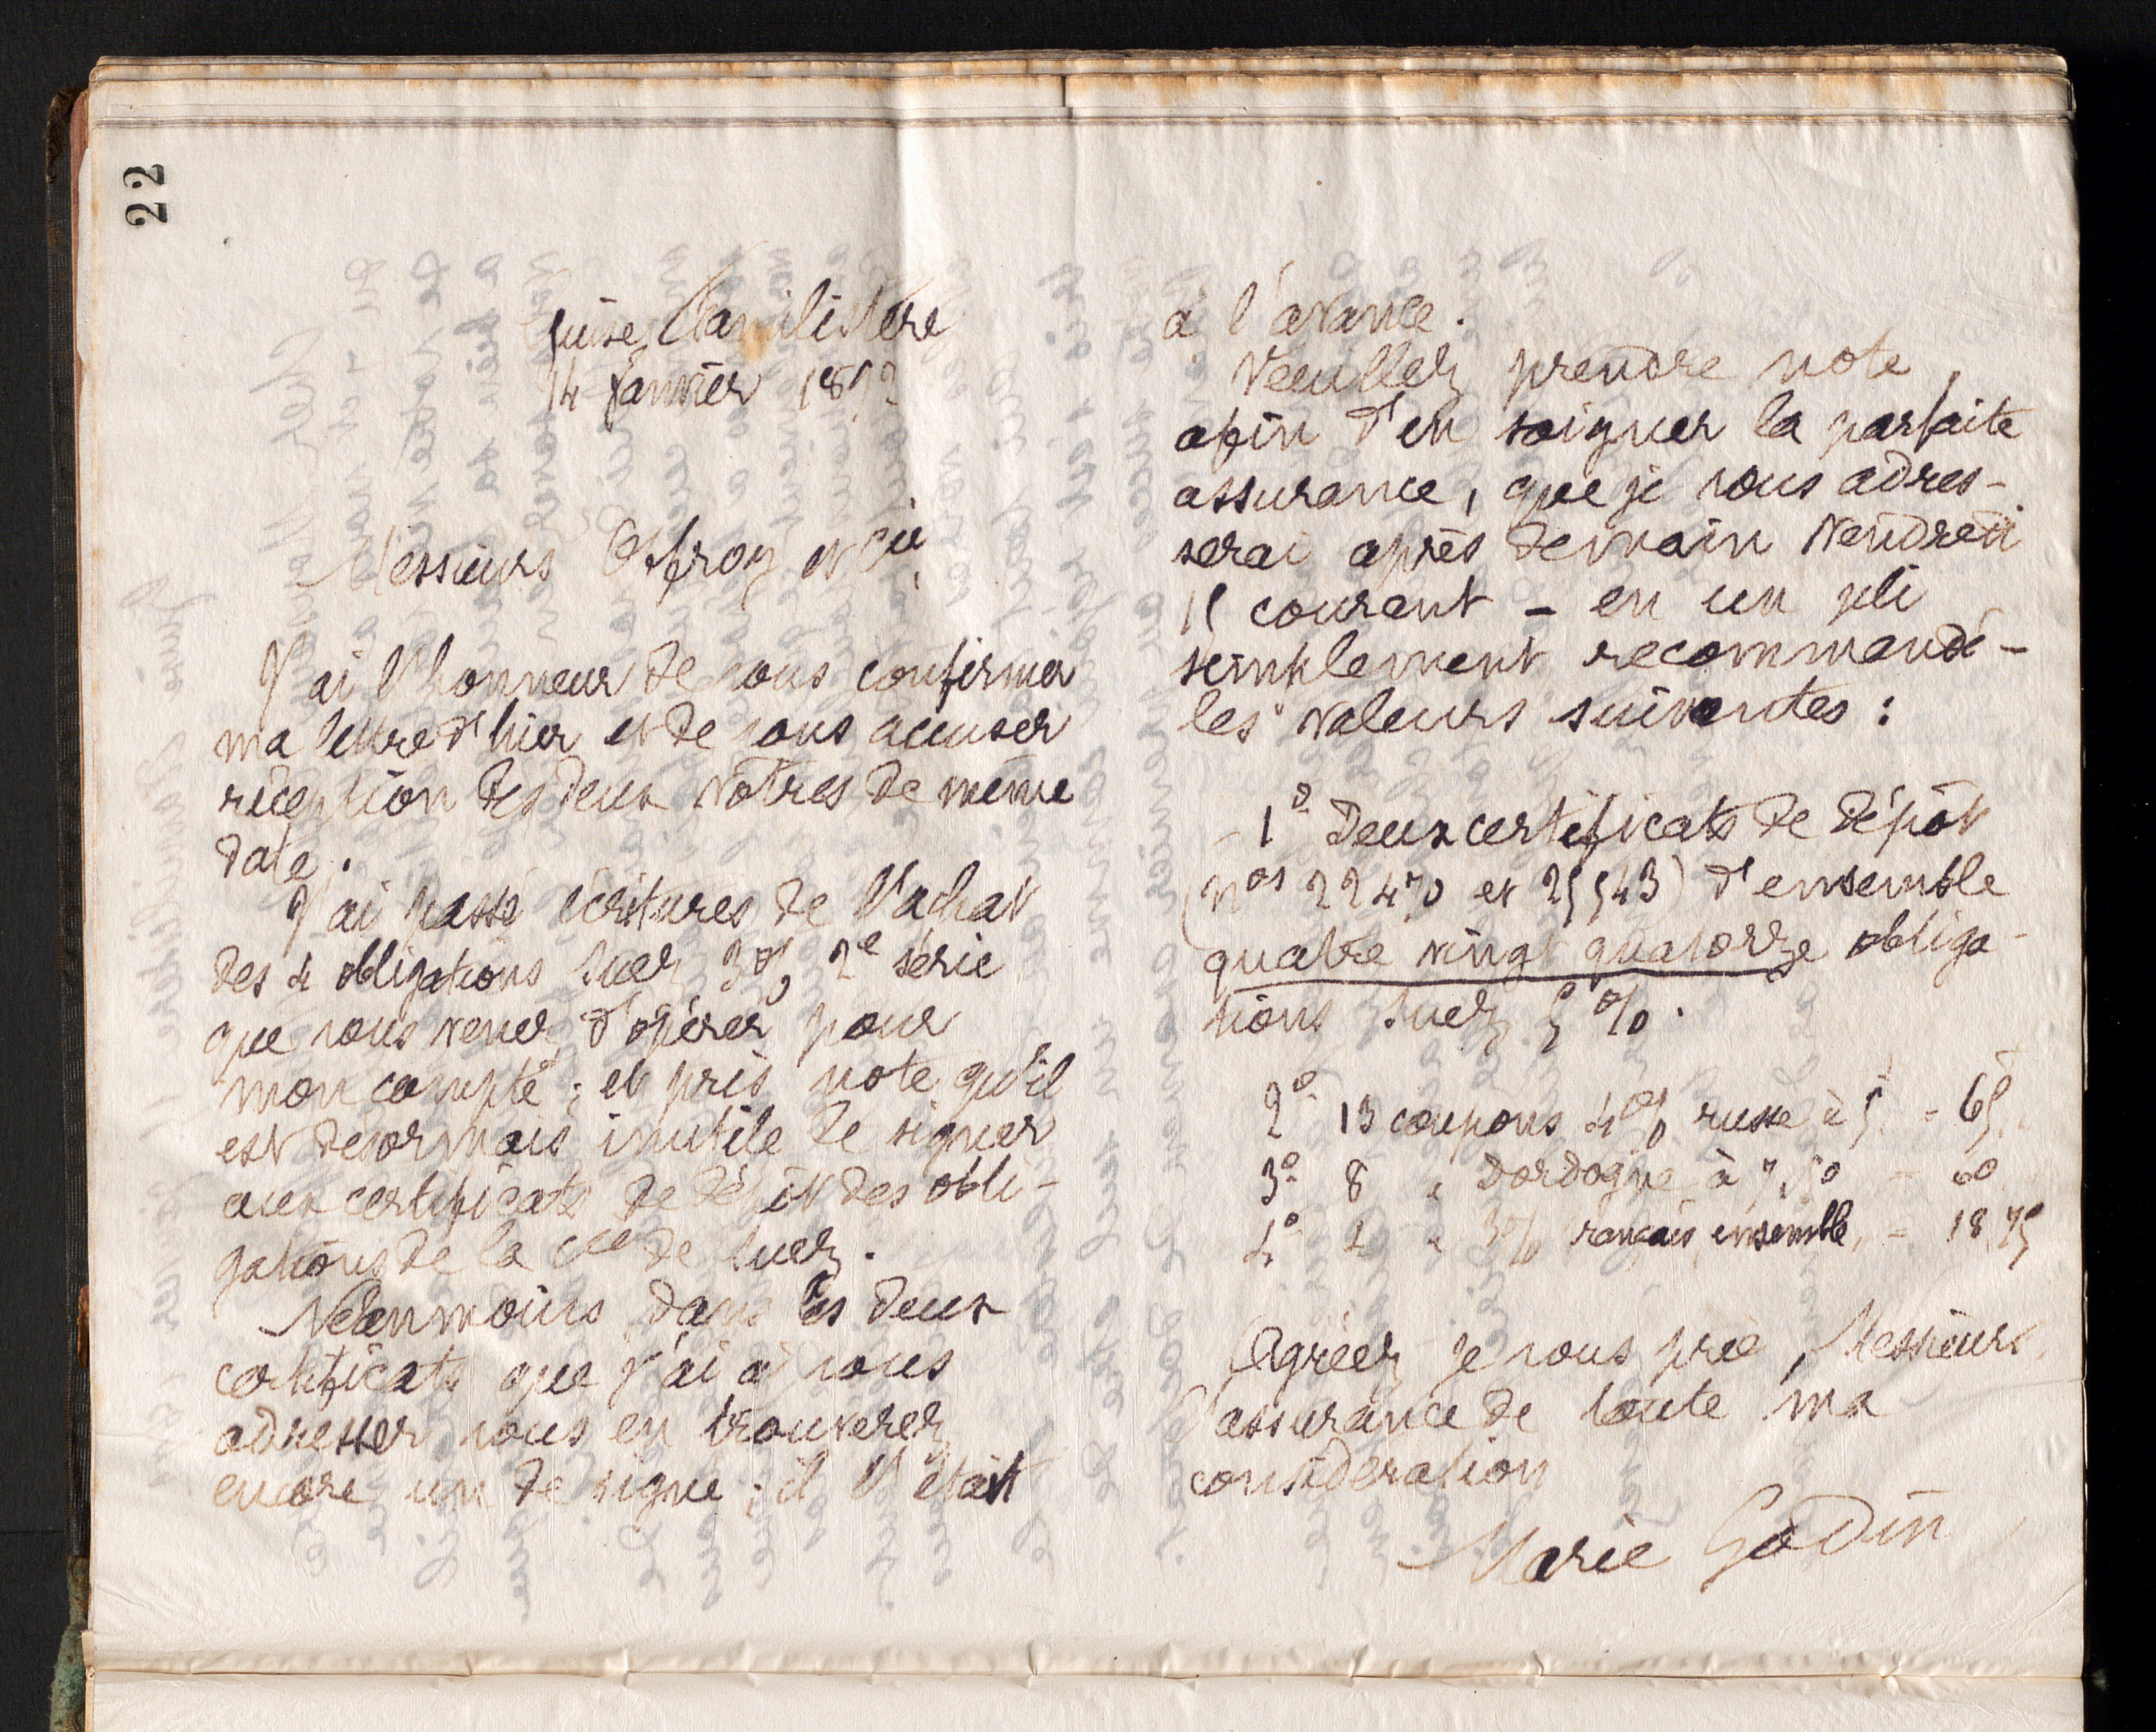 22
Guise Familistère
14 Janvier 1892
Messieurs Offroy et Cie
J'ai l'honneur de vous confirmer
ma lettre d'hier et de vous accuser
réception des deux vôtres de même
date.
J'ai passé écritures de l'achat
des 4 obligations Suez 3%, 2e série
que vous venez d'opérer pour
mon compte ; et pris note qu'il
est désormais inutile de signer
aux certificats de dépôt des obli-
gations de la Cie de Suez.
Néanmoins dans les deux
certificats que j'ai à vous
adresser vous en trouverez
encore un de signé ; il l'était
à l'avance.
Veuillez prendre note,
afin d'en soigner la parfaite
assurance, que je vous adres-
serai après demain vendredi
15 courant - en un pli
simplement recommandé -
les valeurs suivantes :
1° Deux certificats de dépôt
(nos 22470 et 25543) d'ensemble
quatre vingt quatorze obliga-
tions Suez 5%.
2° 13 coupons 4% russe à 5. = 65.
3° 8 " Dordogne à 7,50 = 60
4° 2 " 3% français ensemble, = 18,75
Agréez je vous prie, Messieurs,
l'assurance de toute ma
considération
Marie Godin